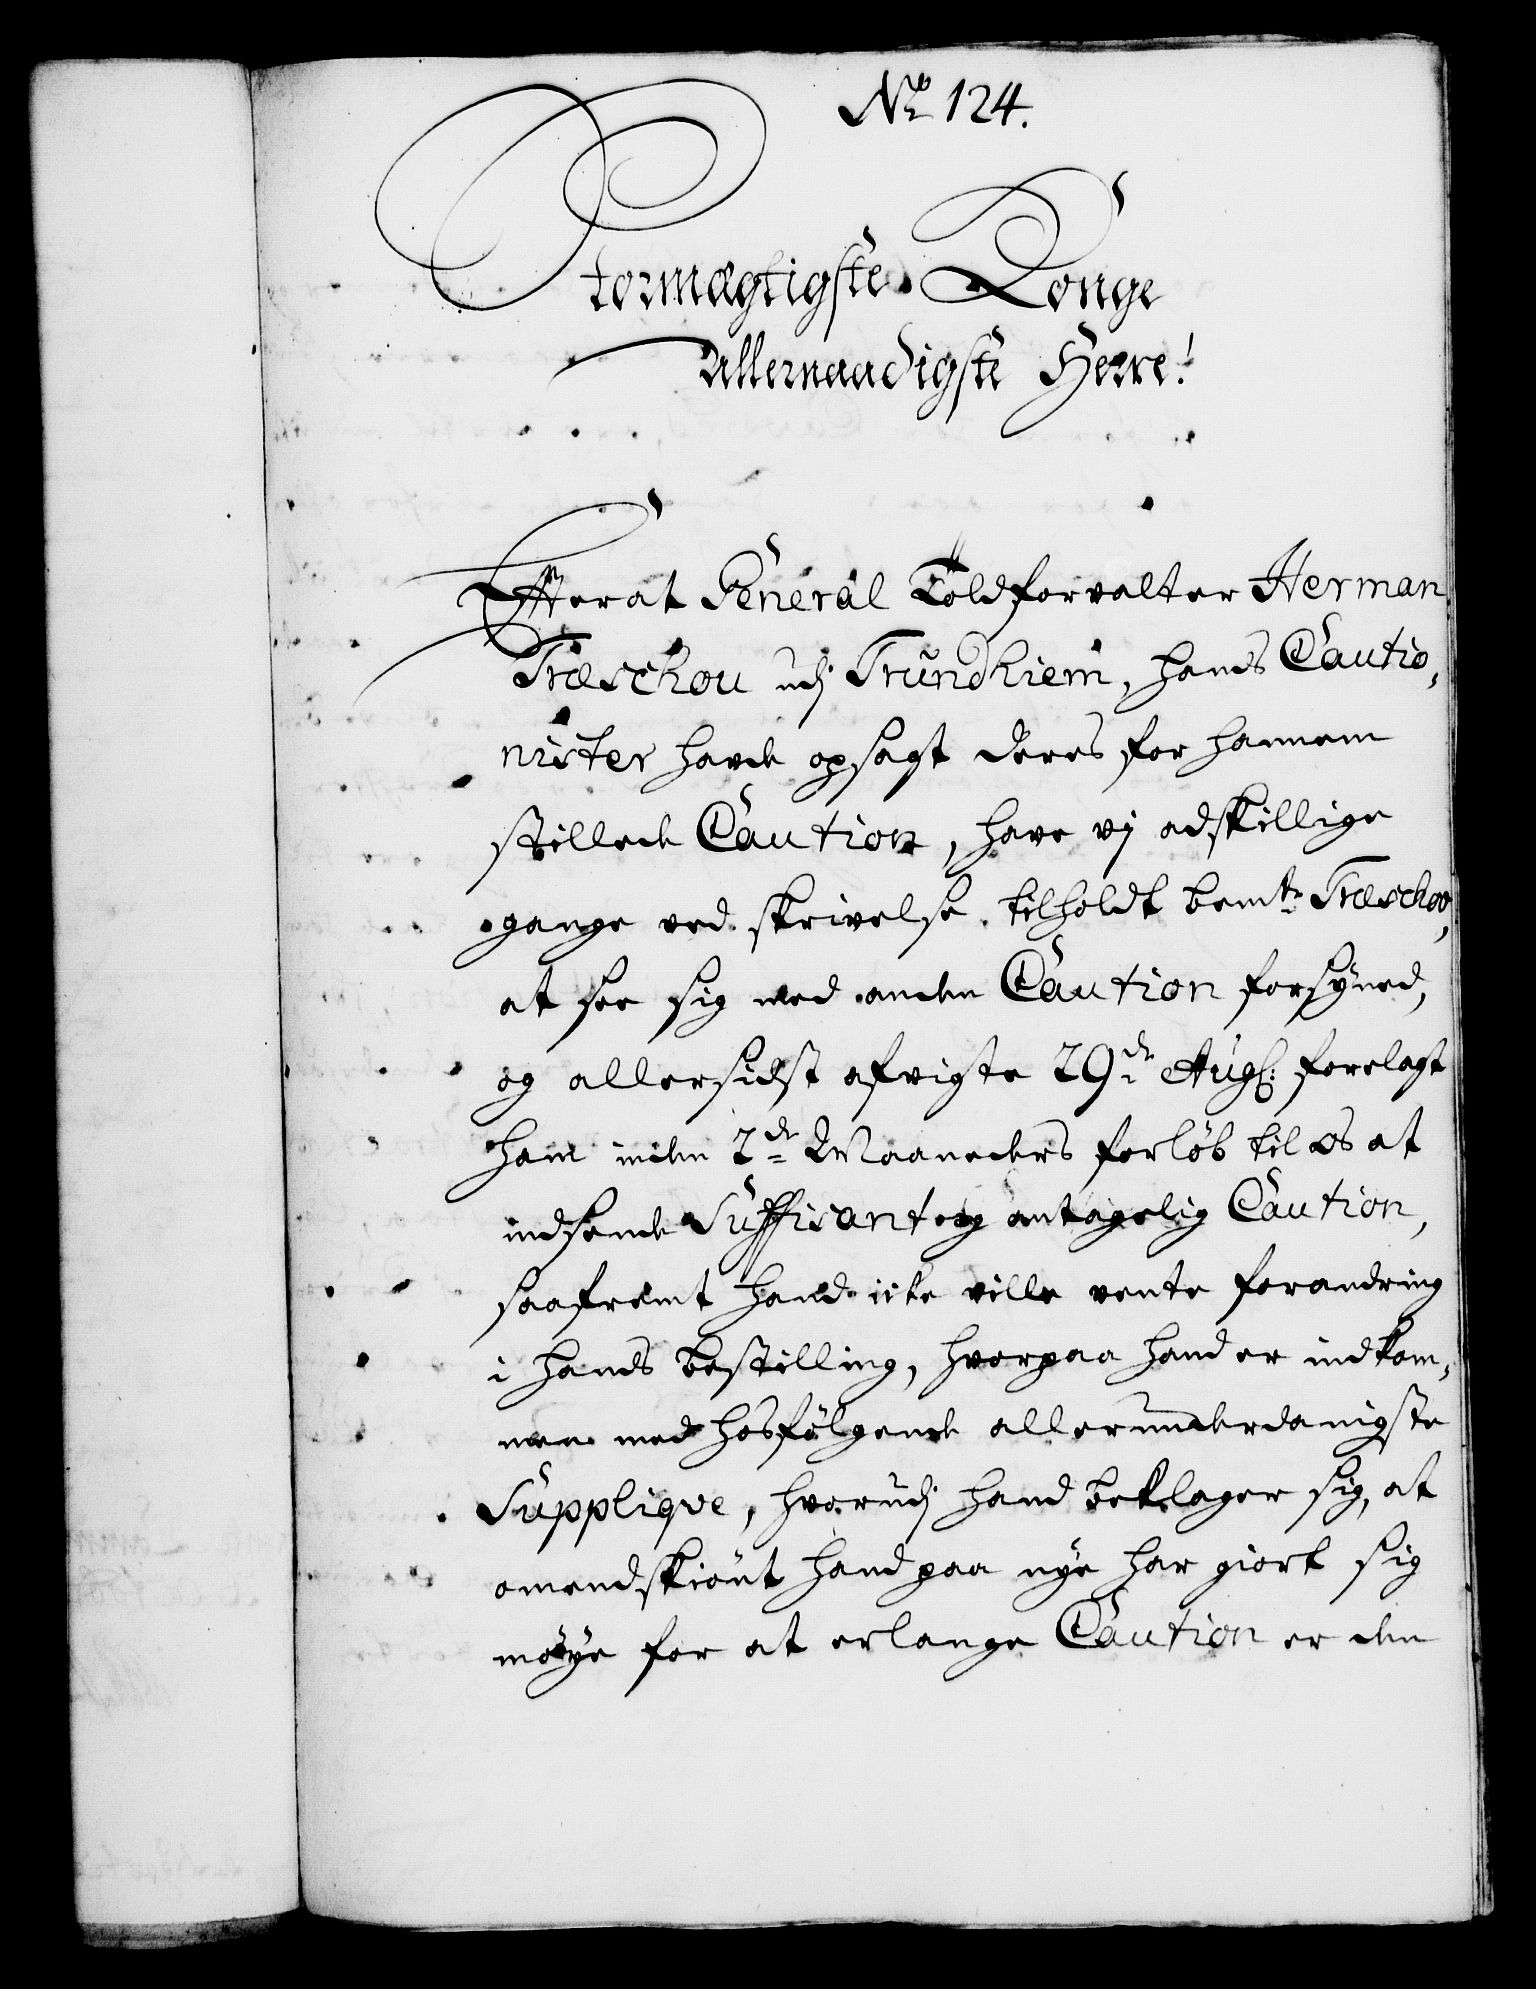 No 124.
Stormægtigste Konge
Allernaadigste Herre!
Efterat General Toldforvalter Herman
Træschou udj Trundhiem, hands Cautio,
nister havde opsagt deres for hannem
stillede Caution, have vj adskillige
gange ved skrivelse tilholdt bemte Træschov,
at see sig med anden Caution forsÿned,
og allersidst afvigte 29de Aug: forelagt
ham inden 2de Maaneders forløb til os at
indsende Suffisant og antagelig Caution,
saafremt hand icke ville vente forandring
i hands bestilling, hvorpaa hand er indkom,
men med hosfølgende allerunderdanigste
Supplique, hvorudj hand beklager sig, at
omendskiønt hand paa nye har giort sig
møye for at erlange Caution er den